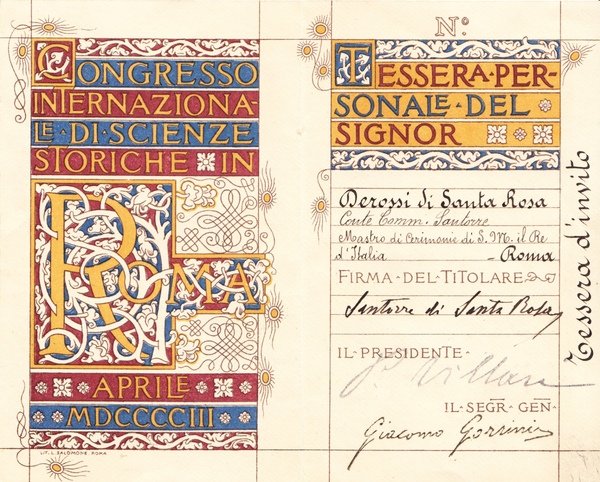 CONGRESSO
INTERNAZIONA-
LE · DI · SCIENZE
STORICHE · IN
ROMA
APRILE
MDCCCCIII
LIT. L. SALOMONE ROMA
Nº.
TESSERA · PER-
SONALE · DEL
SIGNOR
Derossi di Santa Rosa
Conte Comm. Santorre
Mastro di Cerimonie di S. M. il Re
d'Italia – Roma
FIRMA · DEL · TITOLARE
Santorre di Santa Rosa
IL · PRESIDENTE ·
P. Villari
IL · SEGR · GEN ·
Giacomo Gorrini
Tessera d'invito